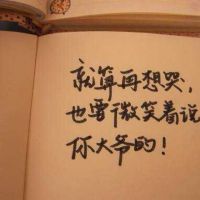 就算再想哭，
也要微笑着说
你大爷的！